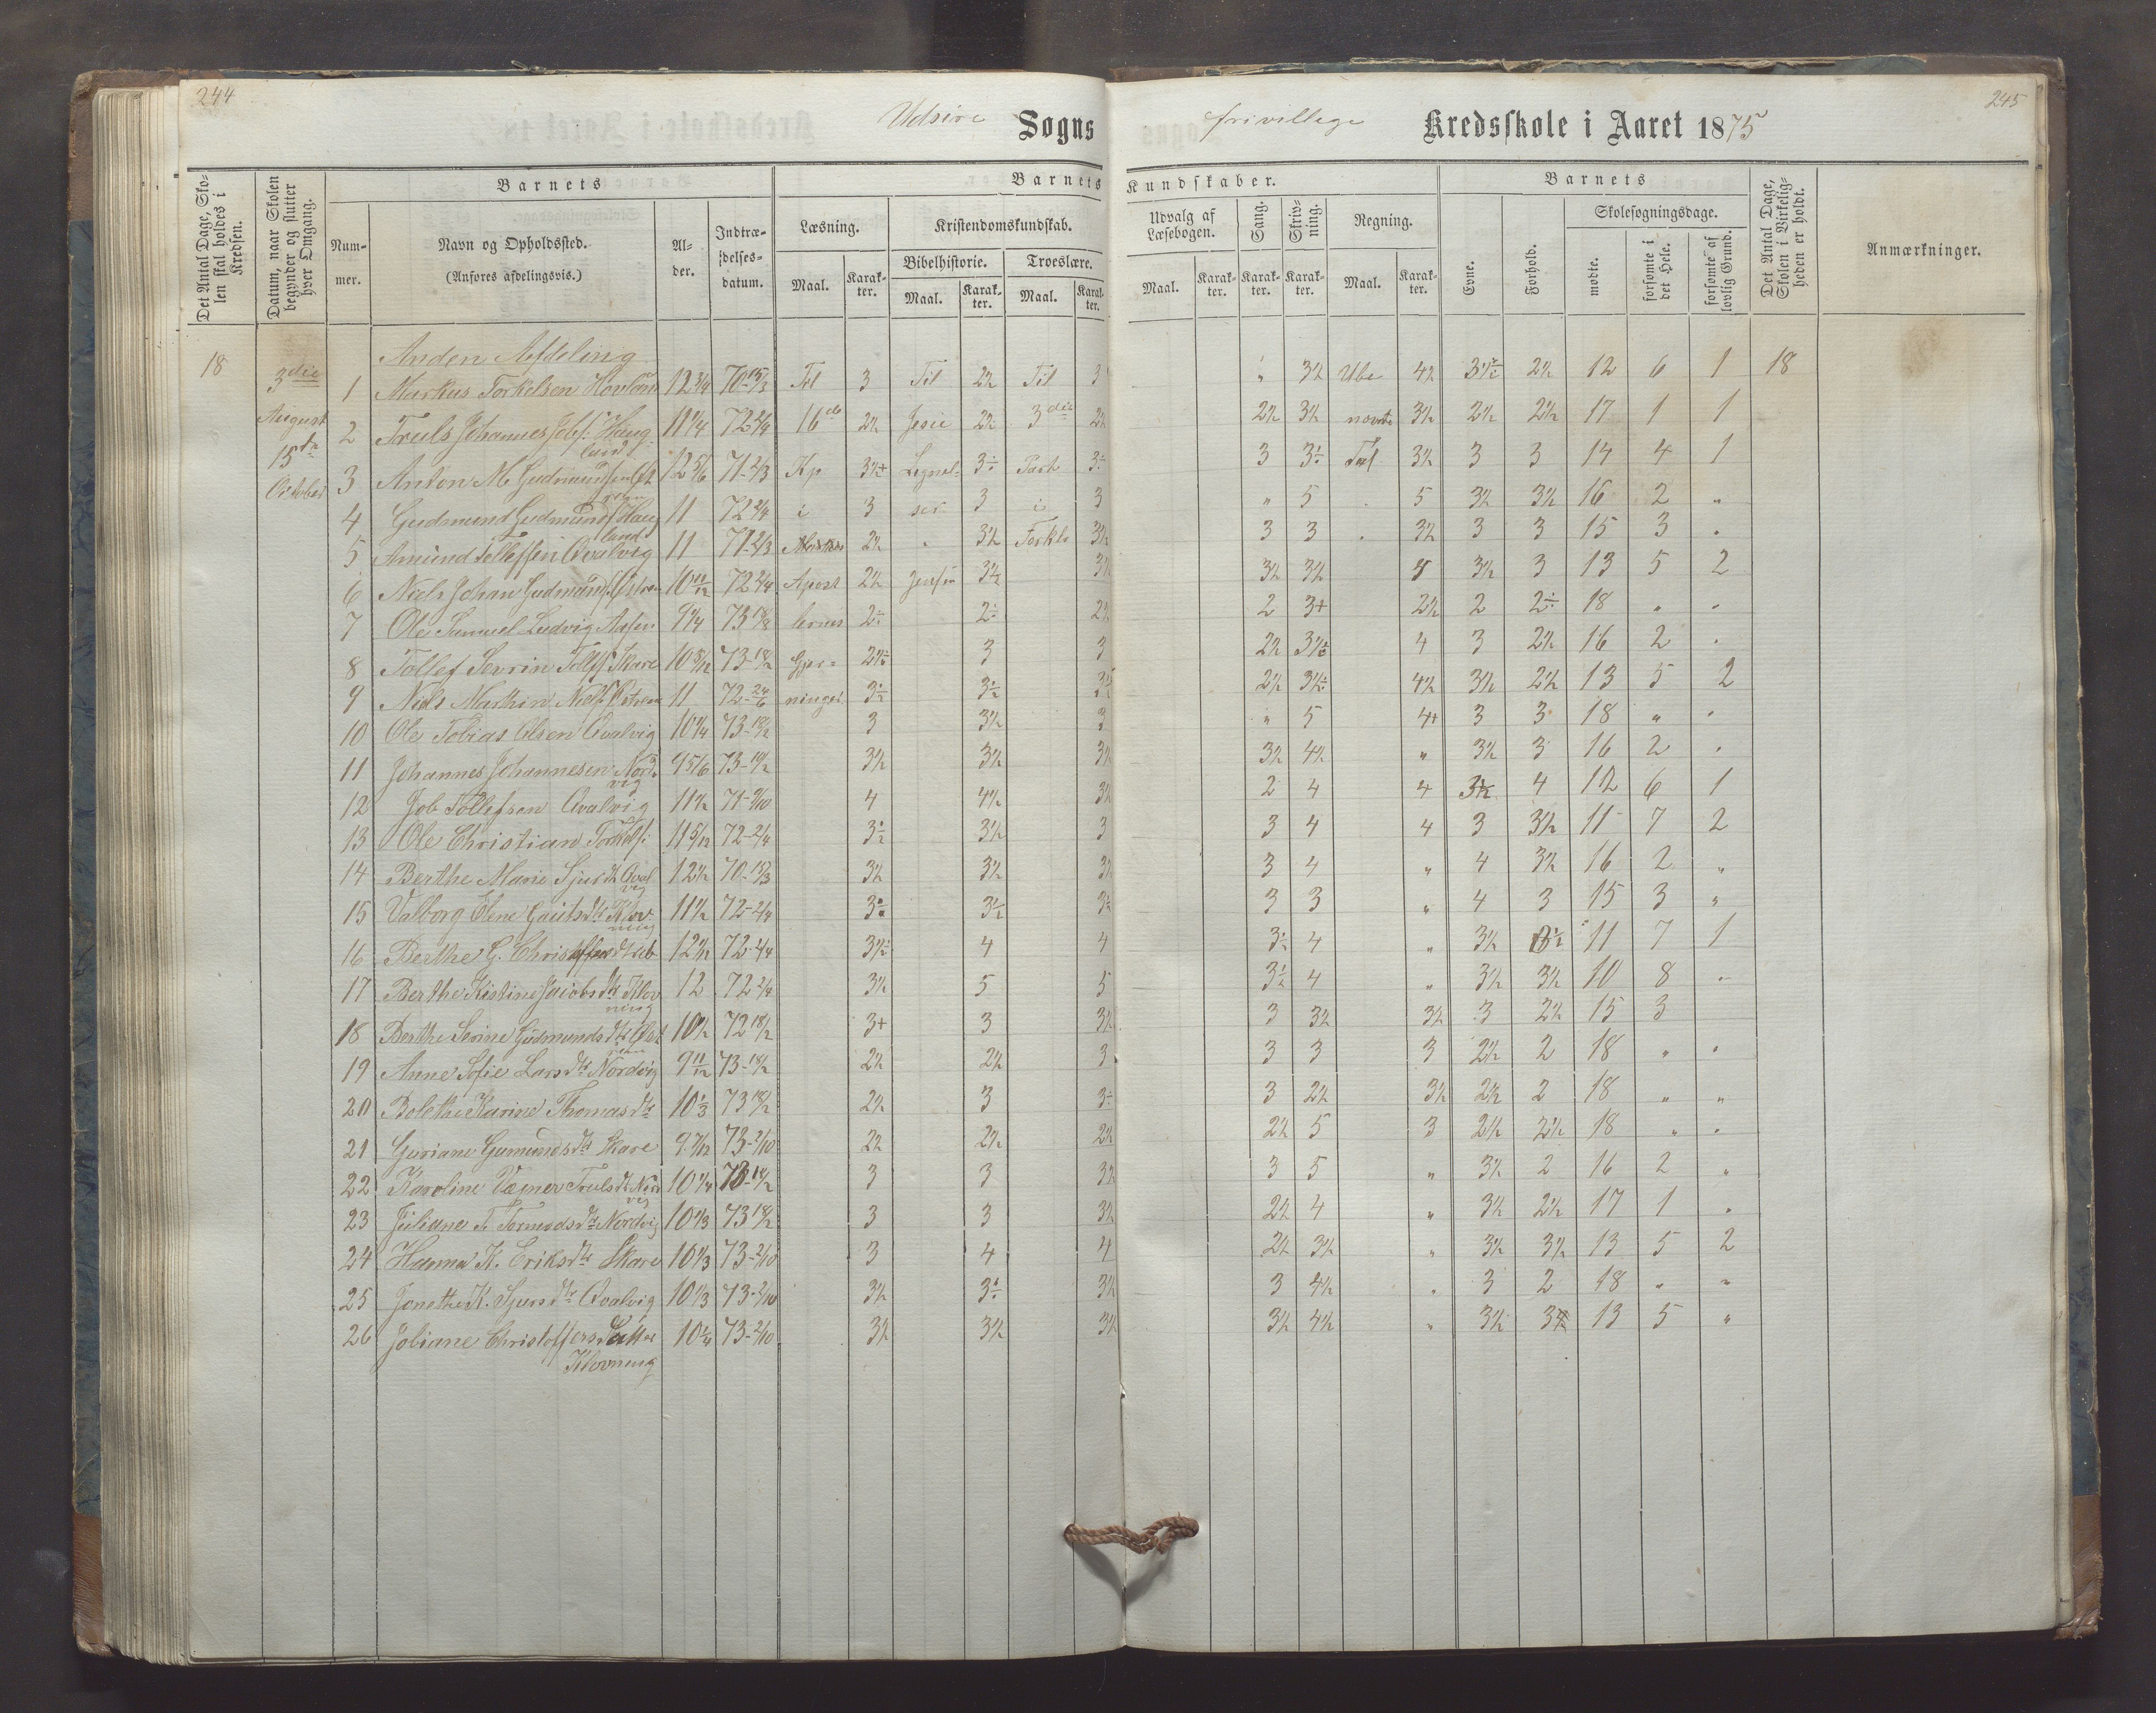 244
245
Udsire Sogns frivillege Kredsskole i Aaret 1875
Det Antal Dage, Skolen skal holdes i Kredsen.
Datum, naar Skolen begynder og slutter hver Omgang.
Barnets
Nummer.
Navn og Opholdssted.
(Anføres afdelingsvis.)
Alder.
Indtrædelsesdatum.
Barnets Kundskaber.
Læsning.
Kristendomskundskab.
Bibelhistorie.
Troeslære.
Udvalg af Læsebogen.
Sang.
Skrivning.
Regning.
Maal.
Karakter.
Maal.
Karakter.
Maal.
Karakter.
Maal.
Karakter.
Karakter.
Karakter.
Maal.
Karakter.
Barnets
Evne.
Forhold.
Skolesøgningsdage.
mødte.
forsømte i det Hele.
forsømte af lovlig Grund.
Det Antal Dage, Skolen i Virkeligheden er holdt.
Anmærkninger.
18
3die August
15de October
Anden Afdeling
1 Markus Torkelsen Hovland 12 3/4 70-15/3 Til 3 Til 2½ Til 3 " 3½ Ube 4½ 2½ 12 6 1 18
2 Truls Johannes Jobs. Haugland 11 1/4 72 2/4 16de 2½ Jesu 2½ 3die 2½ 2½ 3½ 3½ 2½ 2½ 17 1 1
3 Anton M Gudmundsen 12 5/6 71-2/3 Kp 3½+ 3 3 Tal 3½ 3 3 14 4 1
4 Gudmund Gudmunds. Haugland 11 72 2/4 i 3 3 i 3 " 5 5 3½ 3½ 16 2 "
5 Amund Tollefsen Qvalvig 11 71-2/3 2½ 3½ 3½ 3 3 3½ 3 3 15 3 .
6 Niels Johan Gudmunds. 10 11/12 72 2/4 Apost 2½ 3½ 3½ 3½ 3½ 3½ 3 13 5 2
7 Ole Samuel Ludvig Aasen 9 1/4 73 18/8 lernes 2 3+ 2½ 2 18 " .
8 Tollef Sevrin Tollfs. Skare 10 8/12 73-18/2 Gjer- 3 3 2½ 4 3 2½ 16 2 .
9 Niels Martin Niels. 11 72-24/6 ninger 2½ 4½ 3½ 2½ 13 5 2
10 Ole Tobias Olsen Qvalvig 10 1/4 73-18/2 3 3½ 3 " 5 4+ 3 3 18 " .
11 Johannes Johannesen Nordvig 9 5/6 73-18/2 3½ 3½ 3½ 3½ 4½ " 3½ 3 16 2 .
12 Job Tollefsen Qvalvig 11½ 71-9/10 4 4½ 3½ 2 4 4 3½ 4 12 6 1
13 Ole Christian Torkels. 11 5/12 72-2/4 3½ 3 3 4 4 3 3½ 11 7 2
14 Berthe Marie Sjursdtr Qvalvig 12½ 70-15/3 3½ 3½ 3½ 3 4 " 4 3½ 16 2 "
15 Valborg Olene Gautsdtr Klovning 11½ 72-2/4 3 3 " 4 3 15 3 "
16 Berthe G. Christoffersdtr 12½ 72-2/4 4 4 4 " 3½ 11 7 1
17 Berthe Kistine Jacobsdtr Klovning 12 72 2/4 3½ 5 5 4 " 3½ 3½ 10 8 .
18 Berthe Serine Gudmundsdtr 10½ 72 18/2 3+ 3 3½ 3 3½ 3½ 3 2½ 15 3
19 Anne Sofie Larsdtr Nordvig 9 11/12 73-18/2 2½ 2½ 3 3 3 3 2½ 2 18 " .
20 Bolethe Karine Thomasdtr 10 1/3 73 18/2 2½ 3 3 2½ 3½ 2½ 2 18 " "
21 Guriane Gumundsdtr Skare 9 7/12 73-2/10 2½ 2½ 2½ 2½ 5 3 2½ 2½ 18 " .
22 Karoline Trulsdtr Nordvig 10 1/4 73-18/2 3 3 3½ 3 5 " 3½ 2 16 2 "
23 Juliane T. Tormodsdtr Nordvig 10 1/3 73 18/2 3 3 3½ 2½ 4 " 3½ 2½ 17 1 .
24 Hanna K. Eriksdtr Skare 10 1/3 73-2/10 3 4 4 2½ 3½ " 3½ 3½ 13 5 2
25 Jonethe K. Sjursdtr Qvalvig 10 1/3 73-2/10 3½ 3½ 3 4½ " 3 2 18 " "
26 Jobiane Christoffersdatter Klovning 10 1/4 73-2/10 3½ 3½ 3½ 3½ 4½ " 3½ 13 5 "